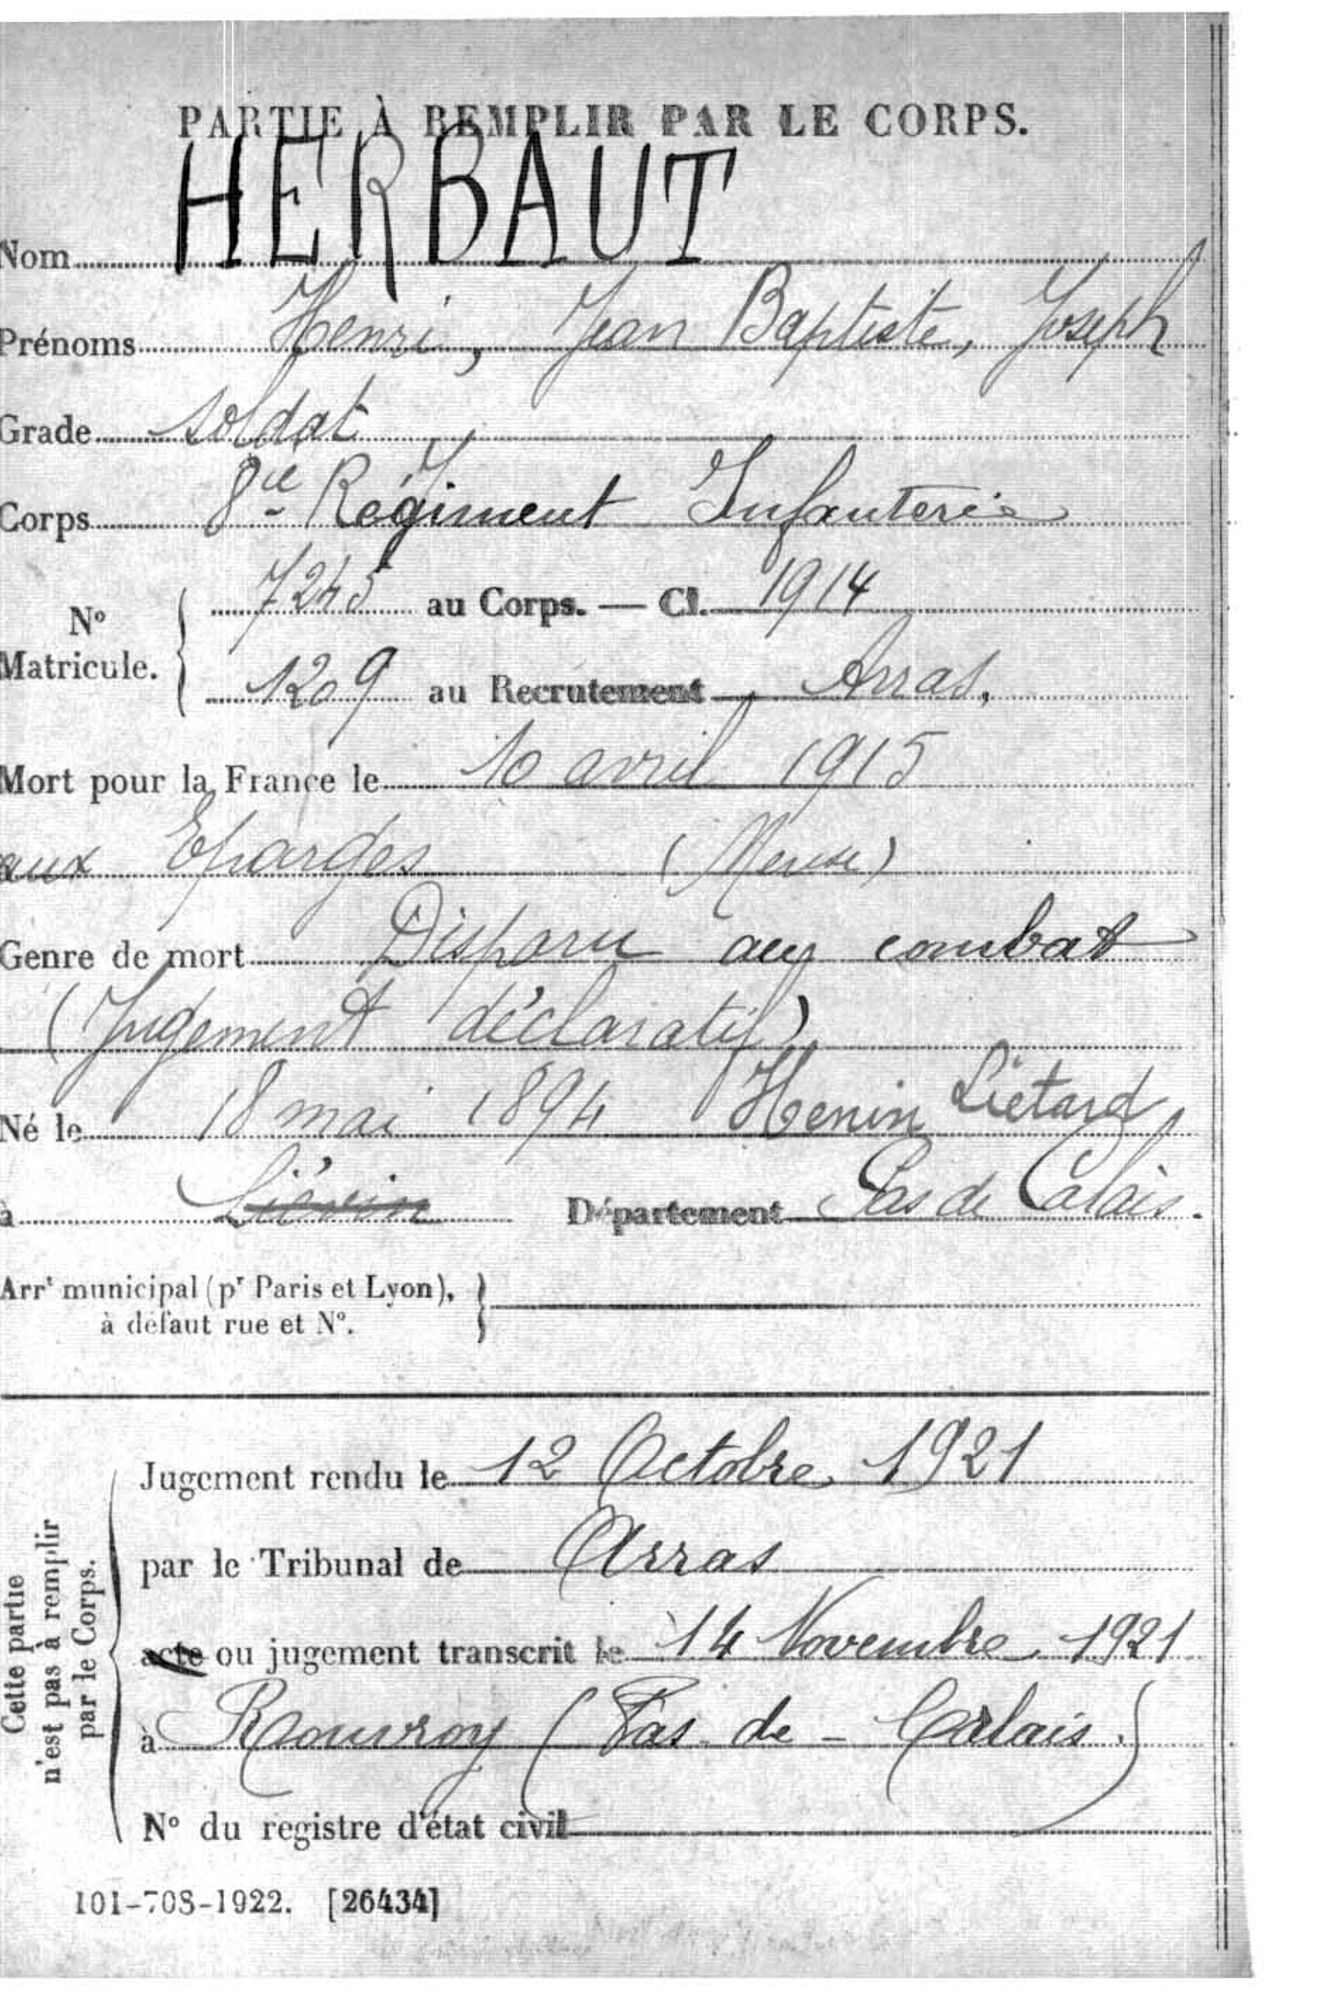 PARTIE À REMPLIR PAR LE CORPS.
Nom HERBAUT
Prénoms Henri, Jean Baptiste, Joseph
Grade soldat
Corps 8ie Régiment Infanterie
No Matricule. 7245 au Corps. — Cl. 1914
1209 au Recrutement Arras,
Mort pour la France le 10 avril 1915
aux Eparges (Meuse)
Genre de mort Disparu au combat
(Jugement déclaratif)
Né le 18 mai 1894 Henin Liétard
à Liévin Département Pas de Calais.
Arrt municipal (pr Paris et Lyon),
à défaut rue et No.
Cette partie
n'est pas à remplir
par le Corps.
Jugement rendu le 12 Octobre 1921
par le Tribunal de Arras
acte ou jugement transcrit le 14 Novembre 1921
à Rouvroy (Pas-de-Calais.)
No du registre d'état civil
101-708-1922. [26434]